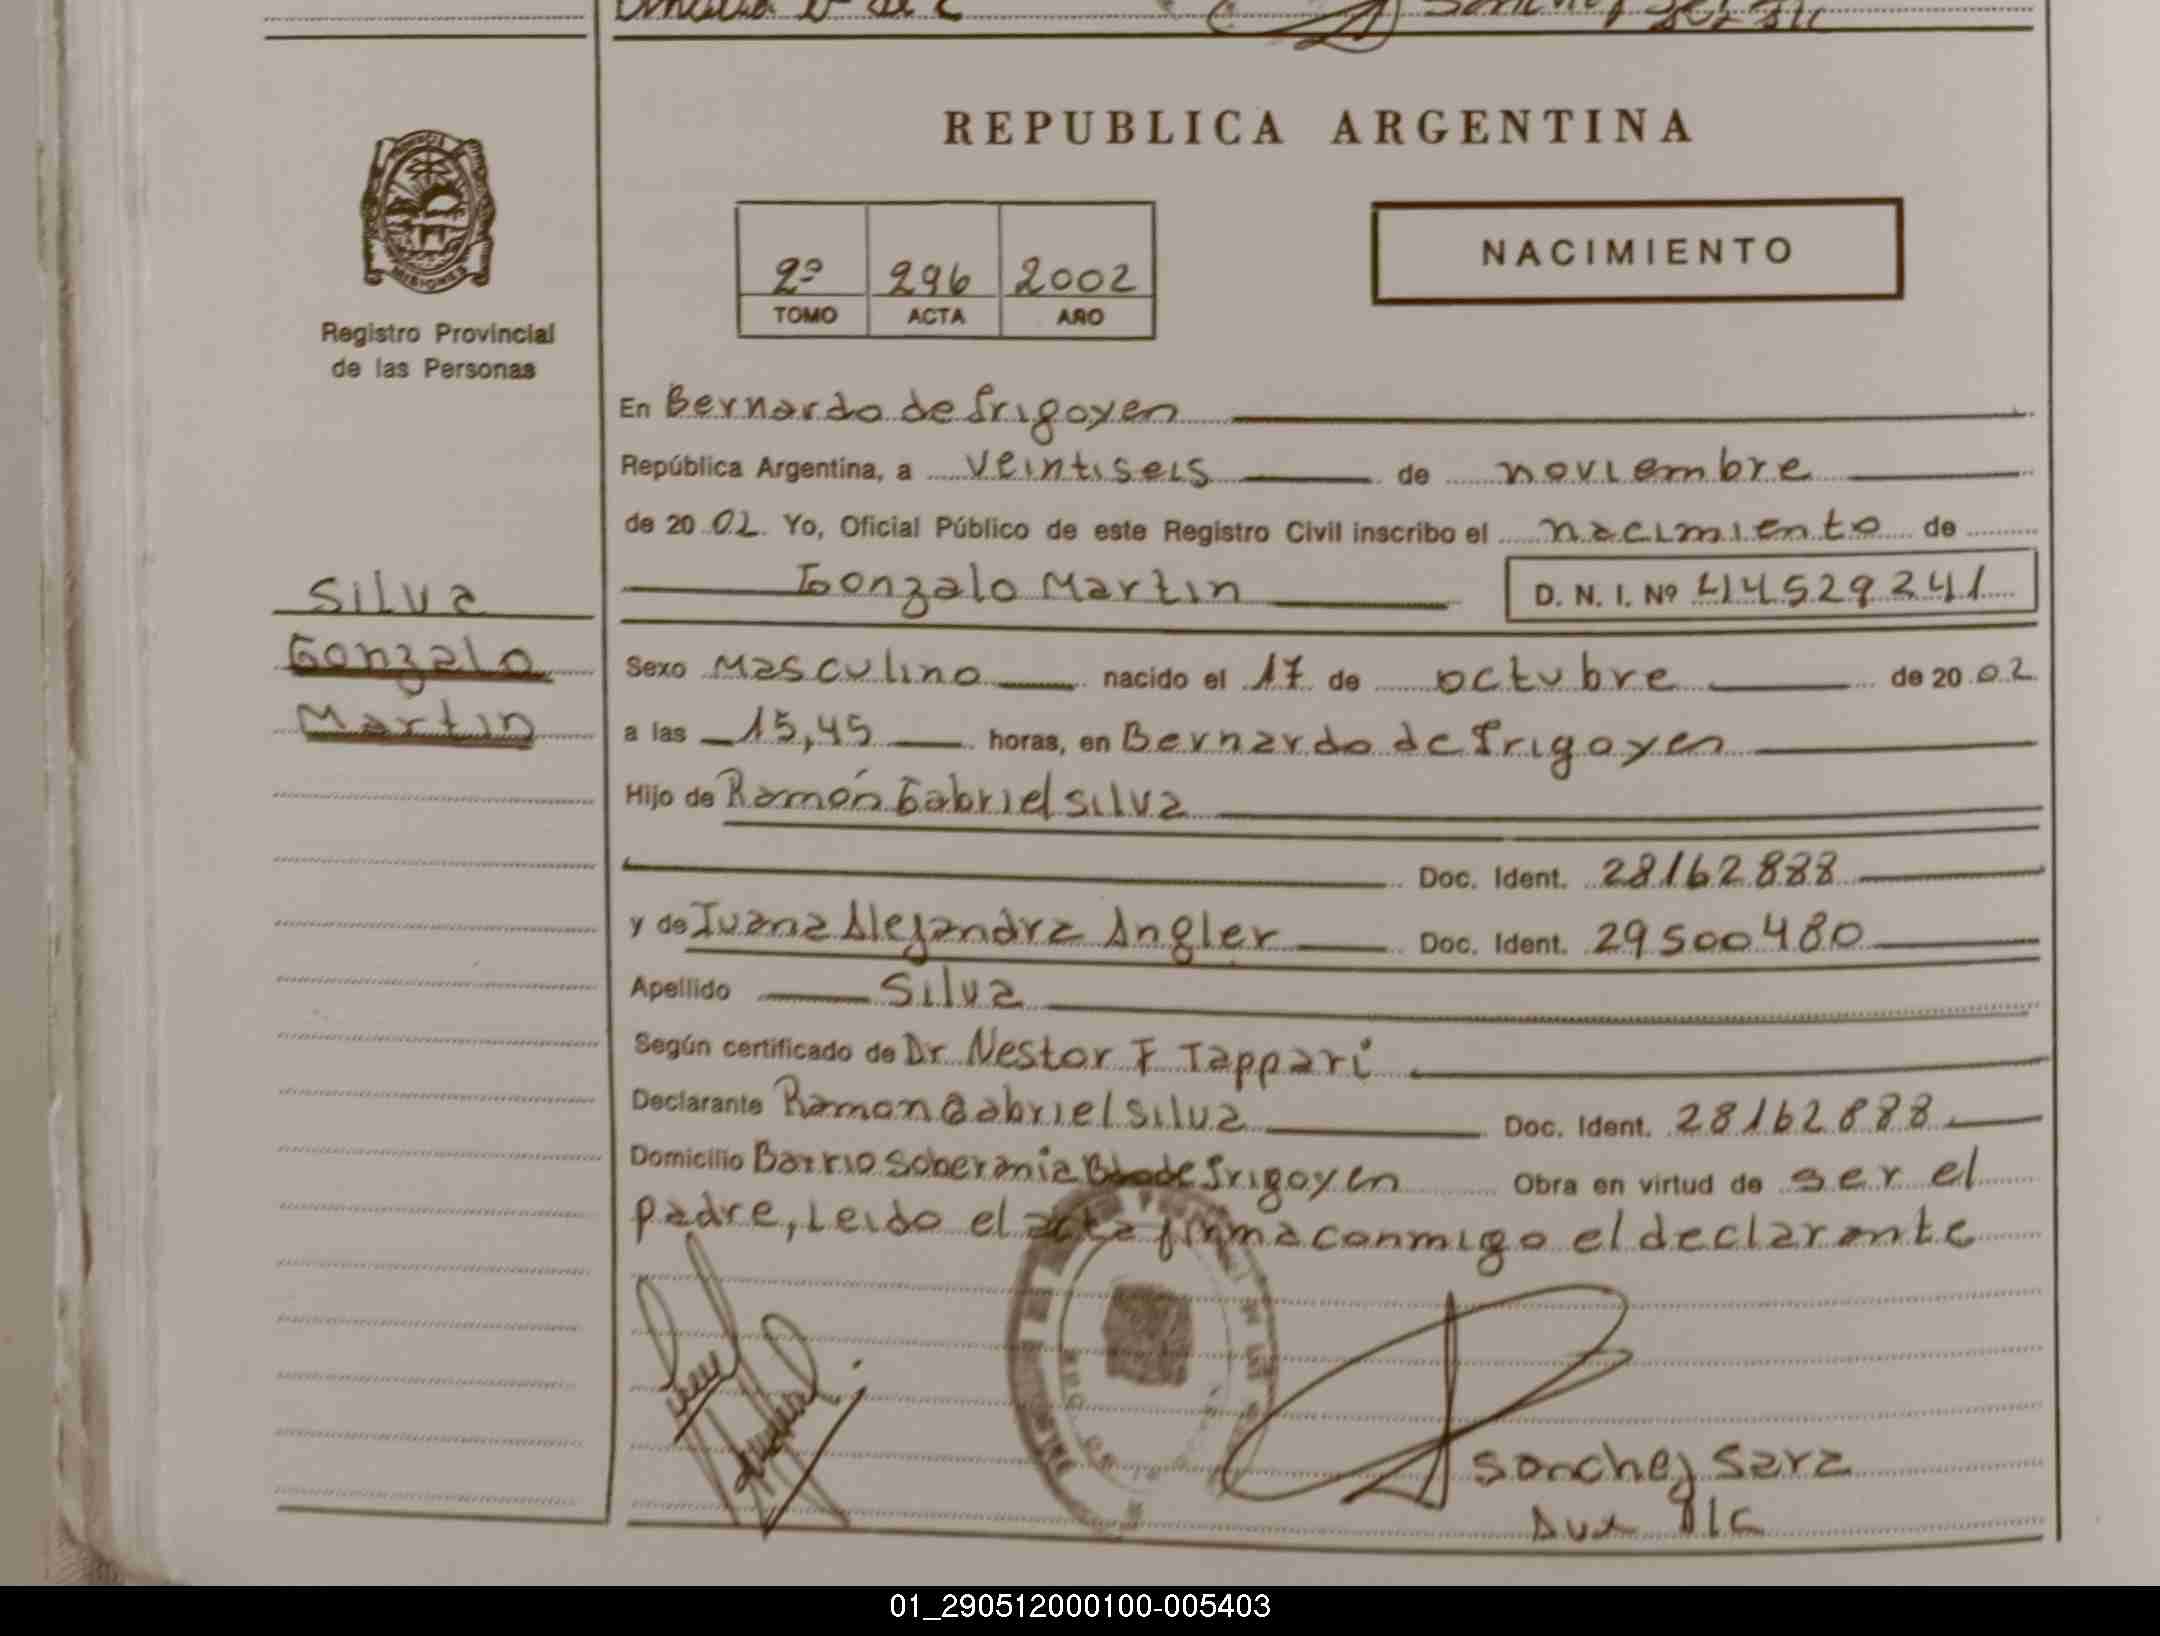 REPUBLICA ARGENTINA
NACIMIENTO
2º 296 2002
TOMO ACTA AÑO
MISIONES
Registro Provincial
de las Personas
Silva
Gonzalo
Martin
En Bernardo de Irigoyen
República Argentina, a veintiseis de noviembre
de 2002. Yo, Oficial Público de este Registro Civil inscribo el nacimiento de
Gonzalo Martin D. N. I. Nº 44529241
Sexo Masculino nacido el 17 de octubre de 2002
a las 15,45 horas, en Bernardo de Irigoyen
Hijo de Ramón Gabriel Silva
Doc. Ident. 28162888
y de Juana Alejandra Angler Doc. Ident. 29500480
Apellido Silva
Según certificado de Dr Nestor F Tappari
Declarante Ramon Gabriel Silva Doc. Ident. 28162888
Domicilio Barrio Soberania Bdo de Irigoyen Obra en virtud de ser el
padre, Leido el acta firma conmigo el declarante
Sanchez Sara
Aux
01_290512000100-005403